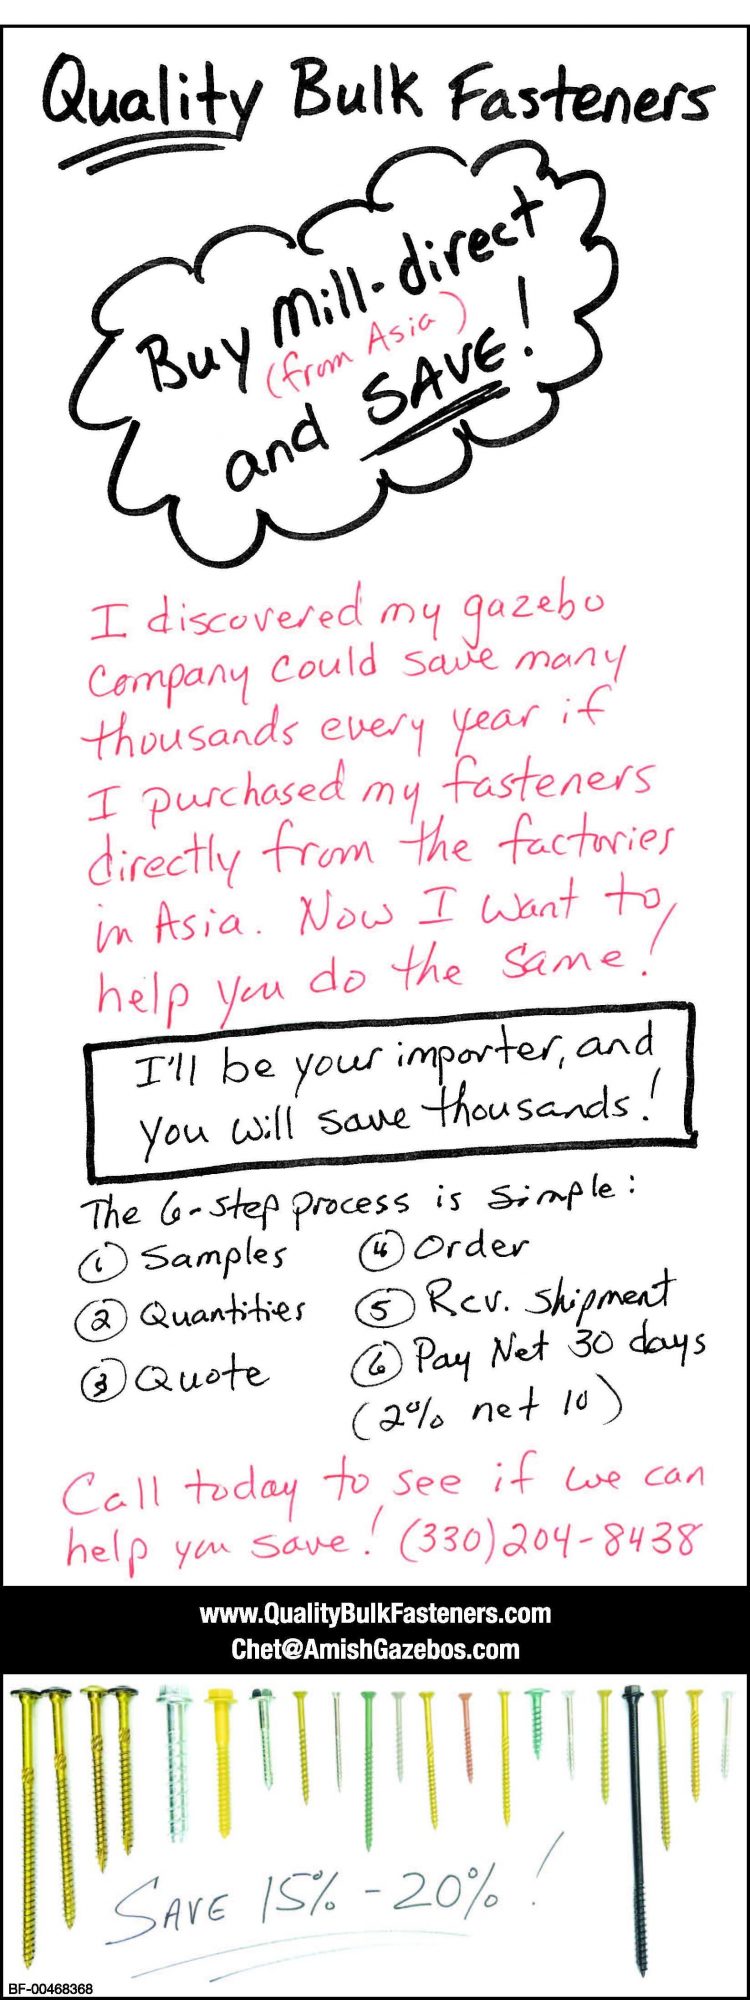 Quality Bulk Fasteners
Buy mill-direct
(from Asia)
and SAVE!
I discovered my gazebo
Company could save many
thousands every year if
I purchased my fasteners
directly from the factories
in Asia. Now I want to
help you do the same!
I'll be your importer, and
you will save thousands!
The 6-step process is simple:
1 Samples
2 Quantities
3 Quote
4 Order
5 Rcv. Shipment
6 Pay Net 30 days
(2% net 10)
Call today to see if we can
help you save! (330)204-8438
www.QualityBulkFasteners.com
Chet@AmishGazebos.com
SAVE 15% - 20%!
BF-00468368